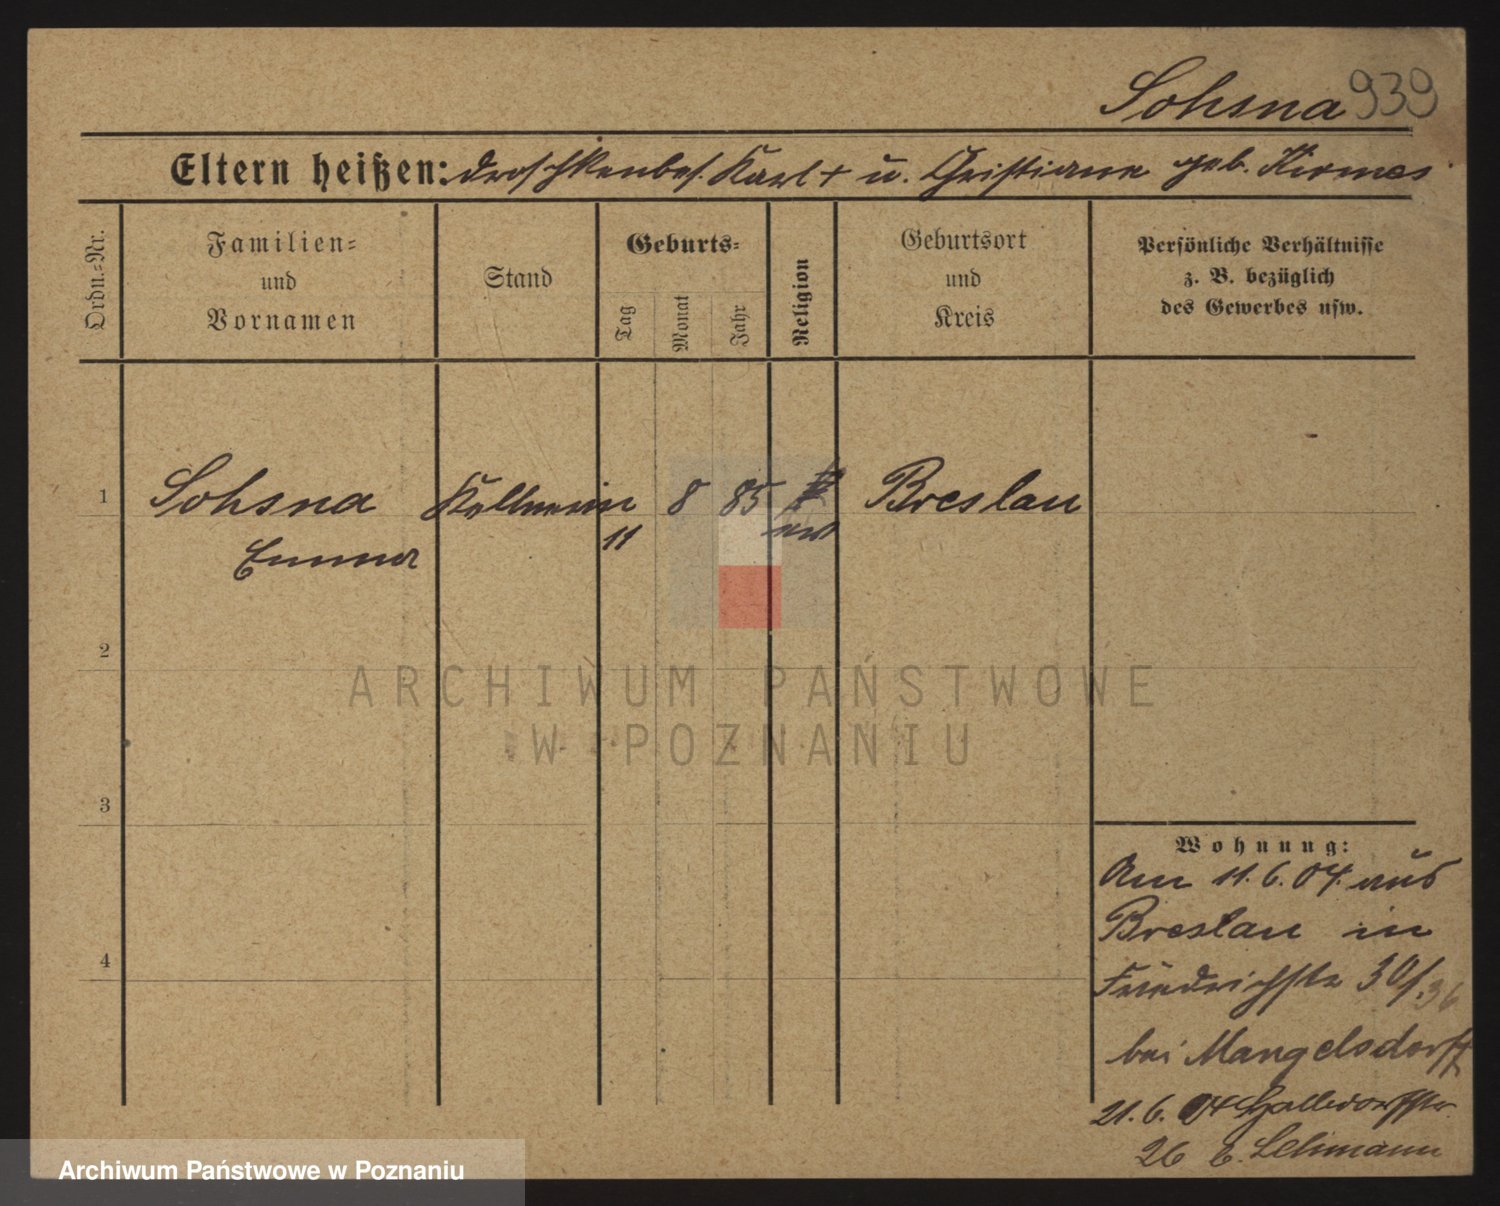 Sohsna 939
Eltern heißen: Droschkenbes. Karl + u. Christiane geb. Kirmes
Ordn.=Nr.
Familien=
und
Vornamen
Stand
Geburts=
Tag
Monat
Jahr
Religion
Geburtsort
und
Kreis
Persönliche Verhältnisse
z. B. bezüglich
des Gewerbes usw.
1 Sohsna Kellnerin 8 85 Breslau
Emma 11
2
3
4
Wohnung:
Am 11.6.04. aus
Breslau in
Friedrichstr 30/.36
bei Mangelsdorff
21.6.04
26 E. Lehmann
ARCHIWUM PAŃSTWOWE
W POZNANIU
Archiwum Państwowe w Poznaniu